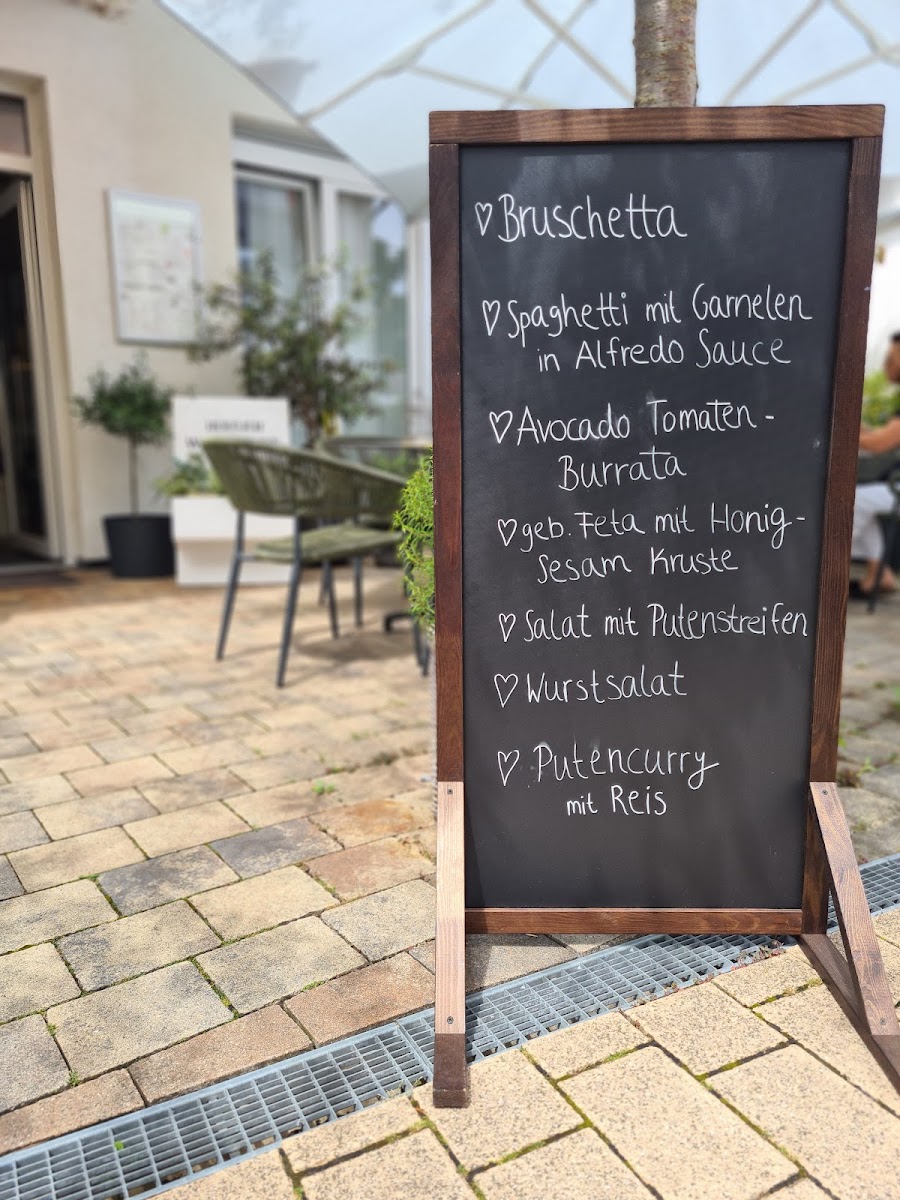 ♡ Bruschetta
♡ Spaghetti mit Garnelen
in Alfredo Sauce
♡ Avocado Tomaten -
Burrata
♡ geb. Feta mit Honig -
Sesam Kruste
♡ Salat mit Putenstreifen
♡ Wurstsalat
♡ Putencurry
mit Reis